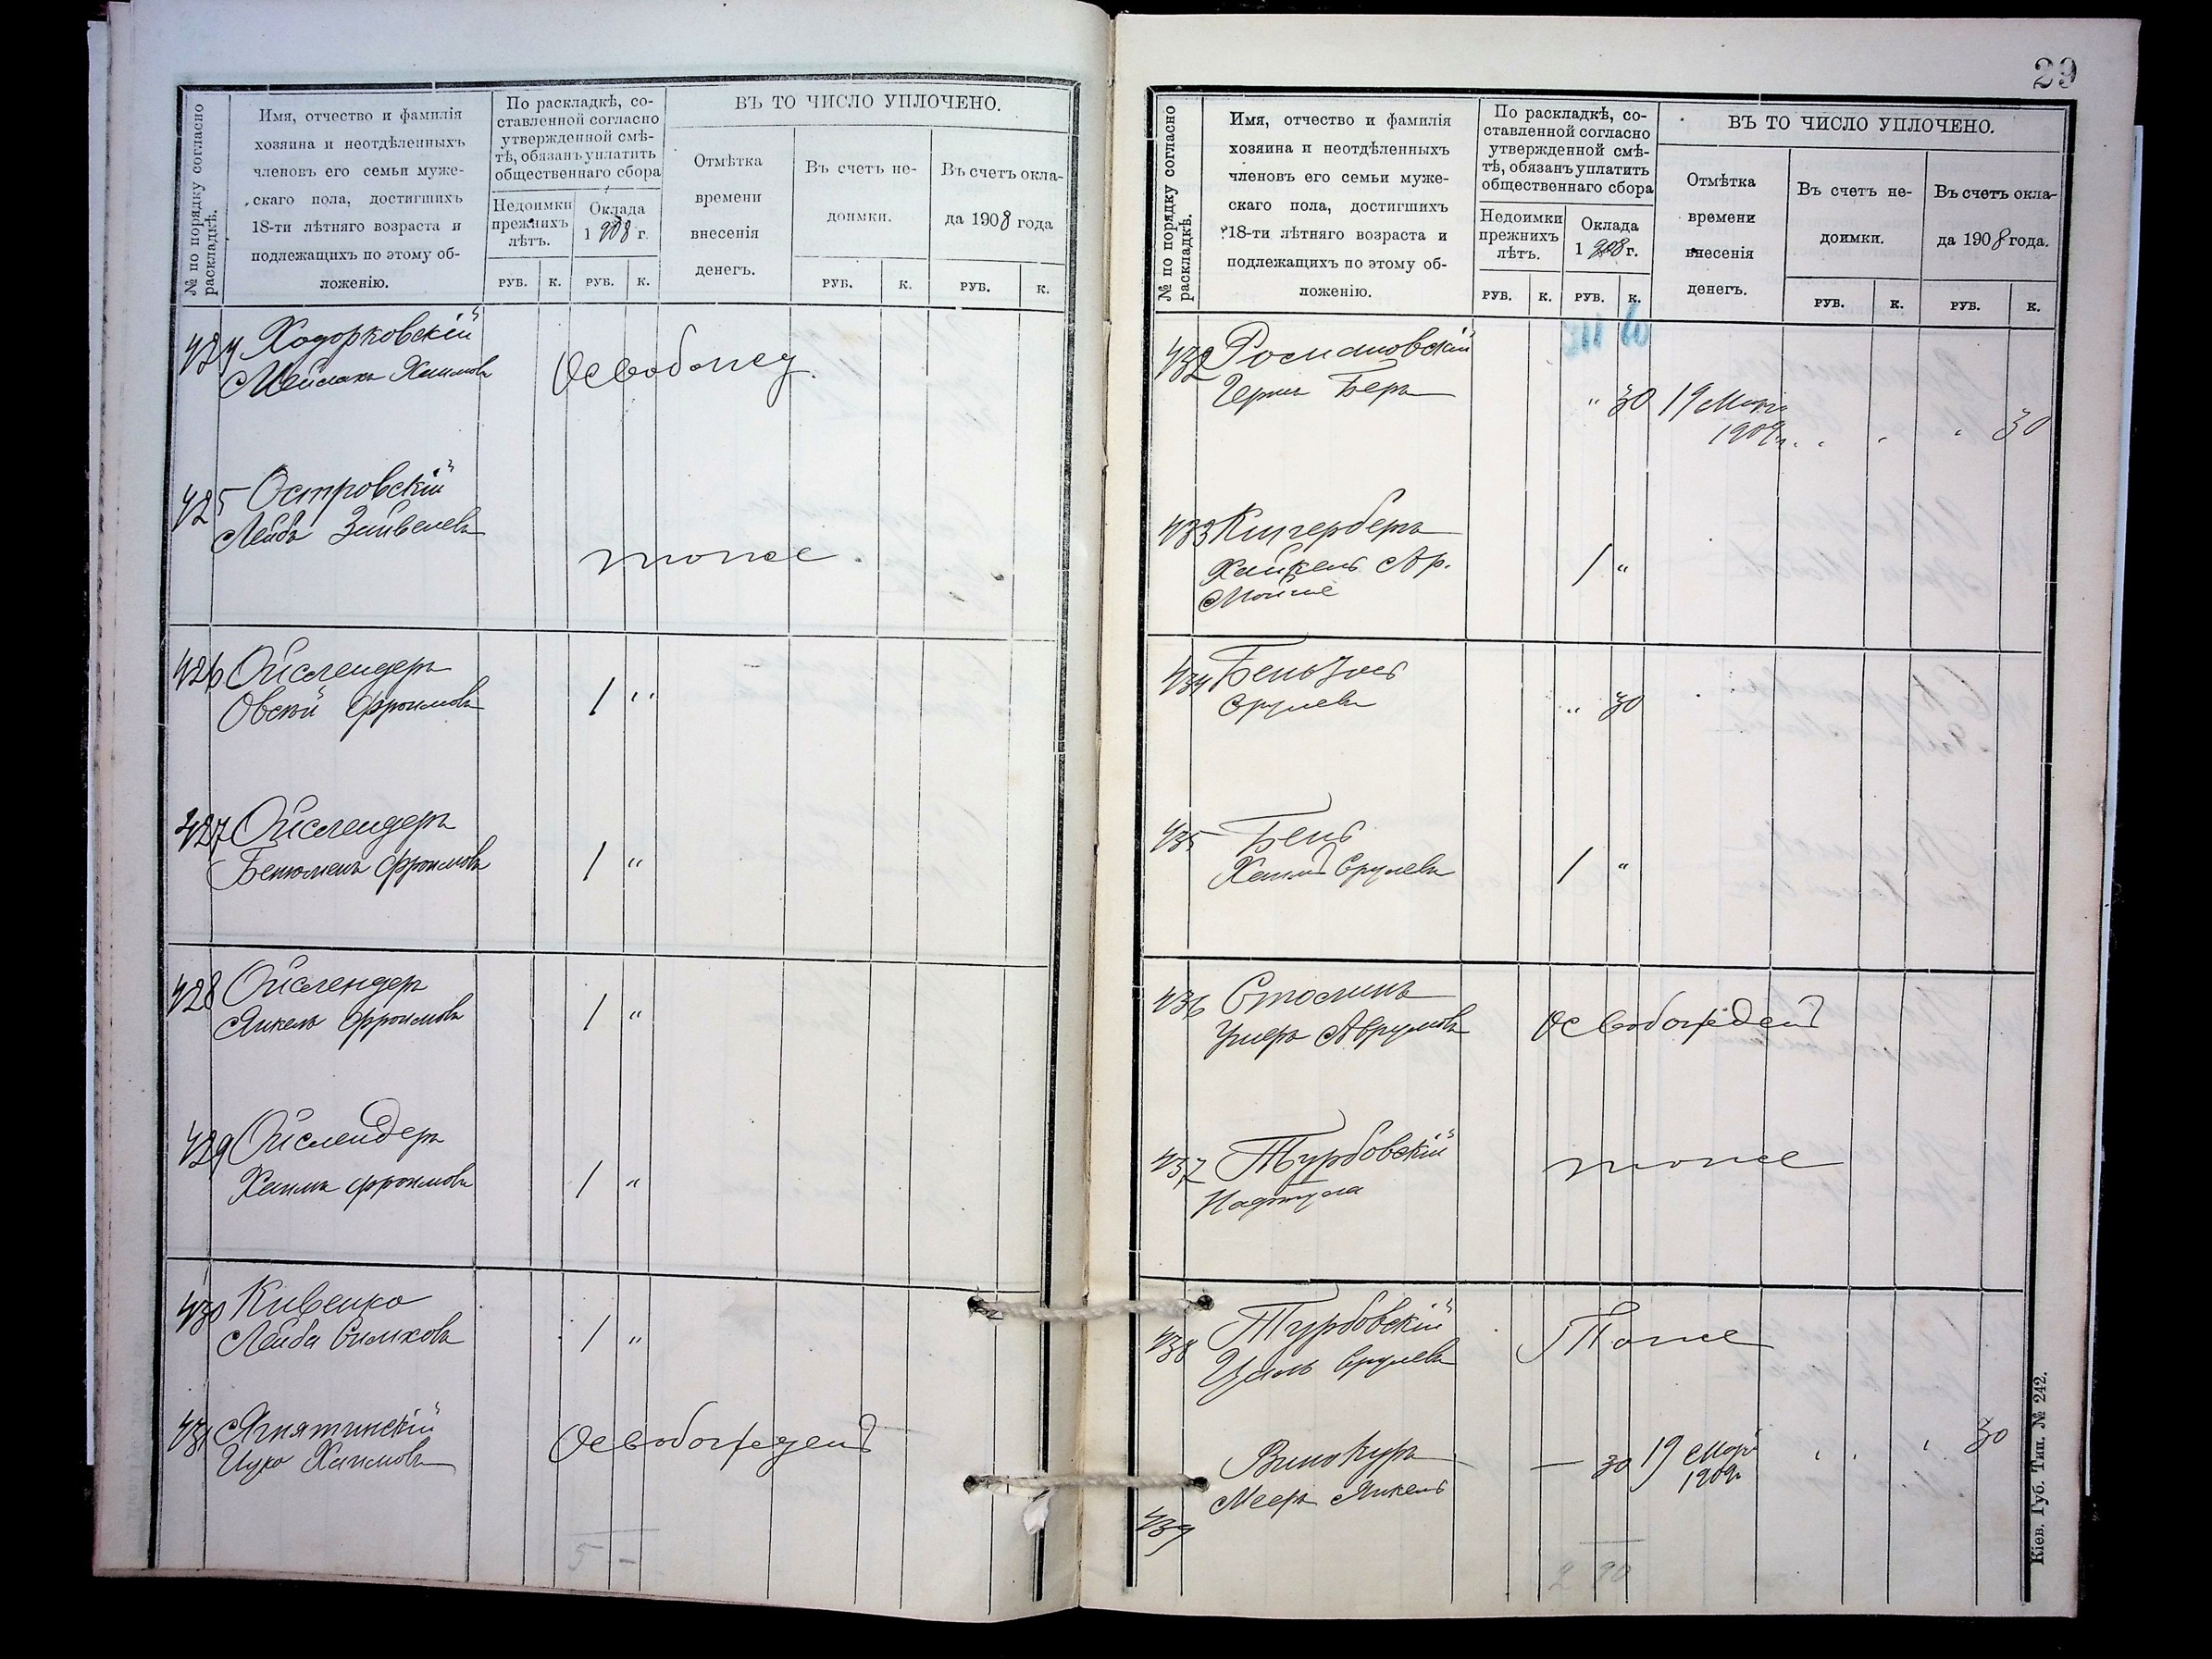 № по порядку согласно
раскладкѣ.
Имя, отчество и фамилія
хозяина и неотдѣленныхъ
членовъ его семьи муже-
скаго пола, достигшихъ
18-ти лѣтняго возраста и
подлежащихъ по этому об-
ложенію.
По раскладкѣ, со-
ставленной согласно
утвержденной смѣ-
тѣ, обязанъ уплатить
общественнаго сбора
Недоимки
прежнихъ
лѣтъ.
Оклада
1908 г.
ВЪ ТО ЧИСЛО УПЛОЧЕНО.
Отмѣтка
времени
внесенія
денегъ.
Въ счетъ не-
доимки.
Въ счетъ окла-
да 1908 года
РУБ. К. РУБ. К. РУБ. К. РУБ. К.
424 Ходорковскій
Хаимовъ Освобожд.
425 Островскій
Лейба Зейвелевъ тоже
426 Ойслендеръ
Овсѣй Фроимовъ 1 "
427 Ойслендеръ
Бенюменъ Фроимовъ 1 "
428 Ойслендеръ
Янкель Фроимовъ 1 "
429 Ойслендеръ
Хаимъ Фроимовъ 1 "
430 Кивенко
Лейба Симховъ 1 "
431 Ягнятинскій
Ицко Хаимовъ Освобожденъ
5 –
29
№ по порядку согласно
раскладкѣ.
Имя, отчество и фамилія
хозяина и неотдѣленныхъ
членовъ его семьи муже-
скаго пола, достигшихъ
18-ти лѣтняго возраста и
подлежащихъ по этому об-
ложенію.
По раскладкѣ, со-
ставленной согласно
утвержденной смѣ-
тѣ, обязанъ уплатить
общественнаго сбора
Недоимки
прежнихъ
лѣтъ.
Оклада
1908 г.
ВЪ ТО ЧИСЛО УПЛОЧЕНО.
Отмѣтка
времени
внесенія
денегъ.
Въ счетъ не-
доимки.
Въ счетъ окла-
да 1908 года.
РУБ. К. РУБ. К. РУБ. К. РУБ. К.
432 Росмановскій
Беръ " 30 19
1909 г. 30
433 Кигербергъ
Хаикель Ар.
Мойше 1 "
434 Бень
Срулевъ " 30
435 Бень
Хаимъ Срулевъ 1 "
436 Столинъ
Ушеръ Аврумовъ Освобожденъ
437 Турбовскій
Нафтула тоже
438 Турбовскій
Срулевъ Тоже
439 Винокуръ
Мееръ Янкель — 30 19
1909 г. 30
2 90
Кіев. Губ. Тип. № 242.